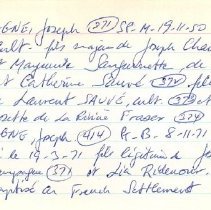 GNE, Joseph (371) SP. M-19-11-50
ult. fils majeur de Joseph Cham
t Marguerite Sanguinette de
t Catherine Sauvé (372) fille
Laurent SAUVÉ, cult. (373) et
ette de la Rivière Fraser (374)
GNE, Joseph (414) G.-B. 8-11-71
le 19-3-71 fils légitime de Jo
mpagne (371) et Lia Ridenour.
ptisé au French Settlement